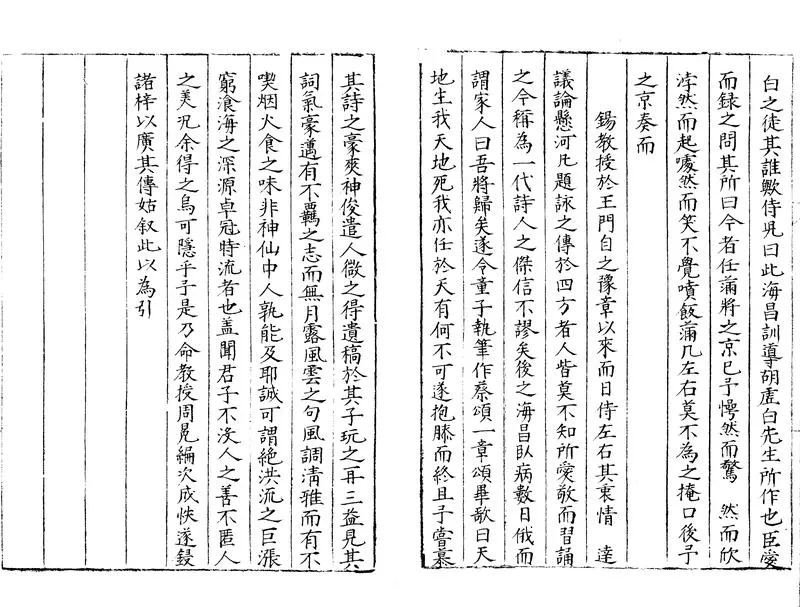 白之徒其誰歟侍兒曰此海昌訓導胡虛白先生所作也臣愛
而録之問其所曰今者任蒲將之京已予愕然而驚 然而欣
浡然而起噱然而笑不覺噴飯蒲几左右莫不為之掩口後予
之京奏而
錫教授於王門自之豫章以來而日侍左右其衷情 達
議論懸河凡題詠之傳於四方者人皆莫不知所愛敬而習誦
之今稱為一代詩人之傑信不謬矣後之海昌臥病數日俄而
謂家人曰吾將歸矣遂令童子執筆作蔡頌一章頌畢歌曰天
地生我天地死我亦任於天有何不可遂抱膝而終且予嘗慕
其詩之豪爽神俊遣人徵之得遺稿於其子玩之再三益見其
詞氣豪邁有不覊之志而無月露風雲之句風調清雅而有不
喫烟火食之味非神仙中人孰能及耶誠可謂絕洪流之巨漲
窮滄海之深源卓冠時流者也盖聞君子不沒人之善不匿人
之美況余得之烏可隱乎于是乃命教授周冕編次成帙遂鋟
諸梓以廣其傳姑叙此以為引